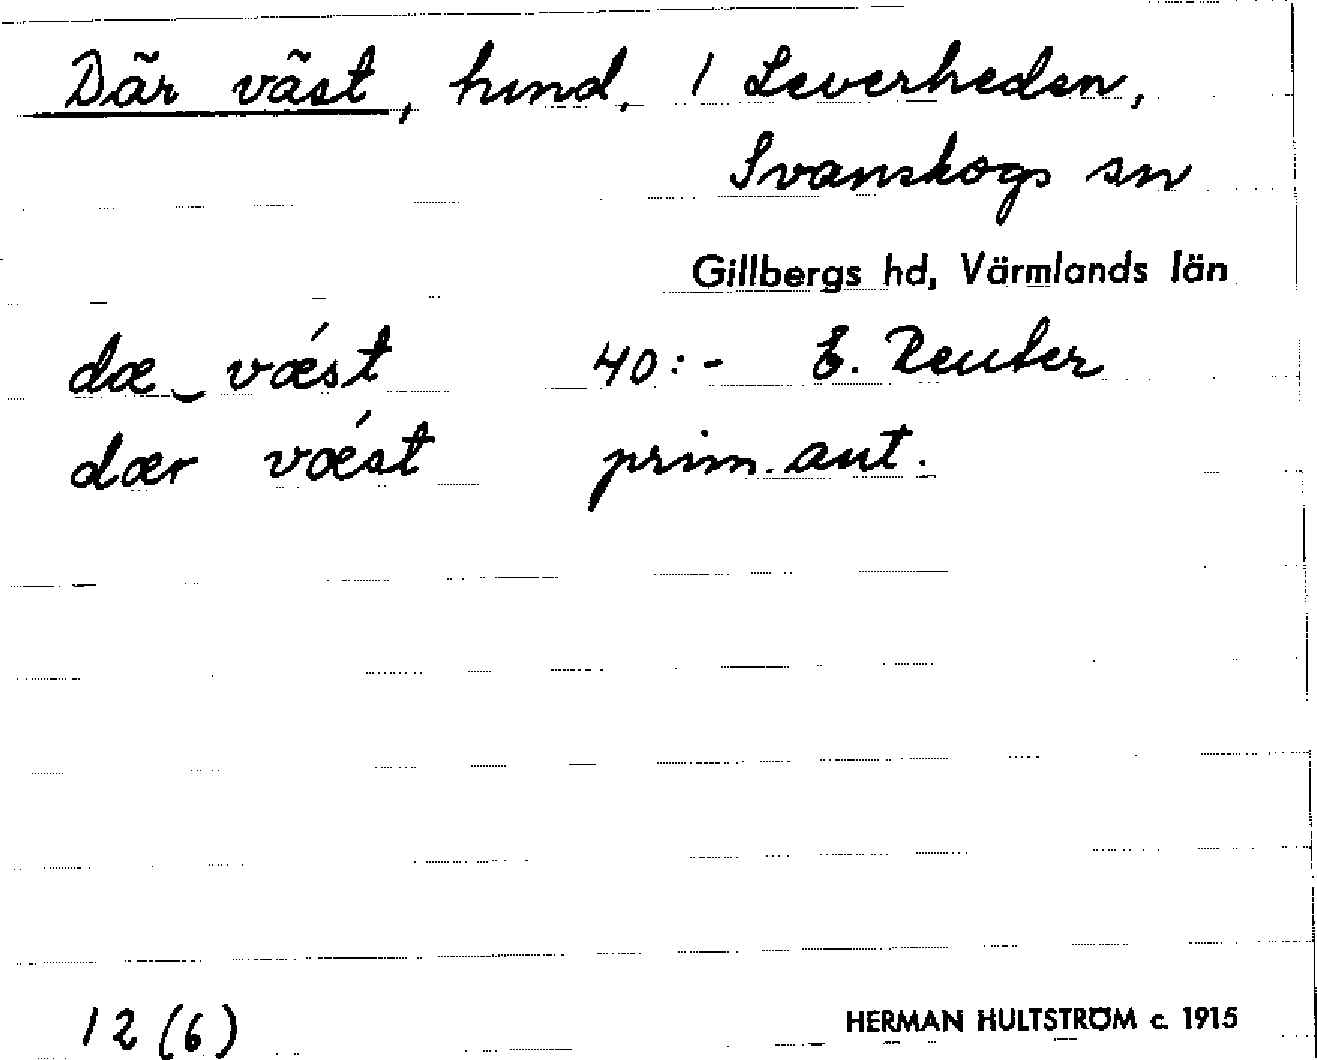 Där väst, hmd. 1 Leverheden,
Svanskogs sn
Gillbergs hd, Värmlands län
dæ‿ vǽst 40:- E. Reuter
dær vǽst prim. ant.
12 (6) HERMAN HULTSTRÖM c. 1915